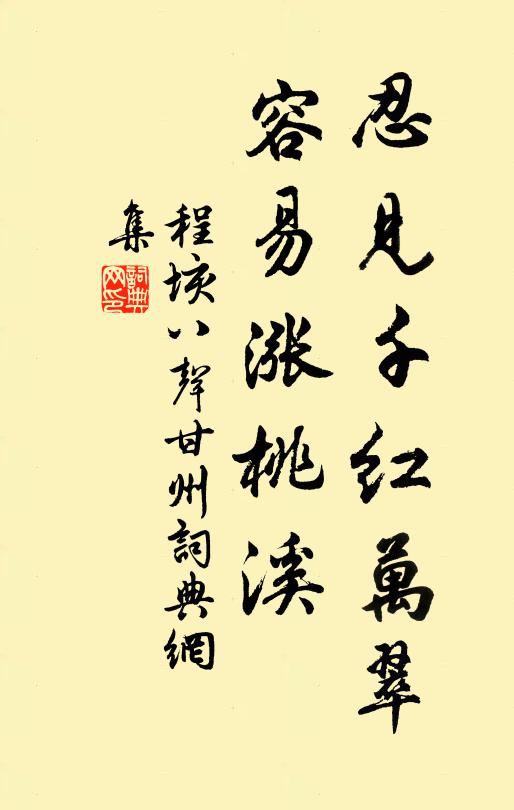 忍見千紅萬翠
容易漲桃溪
程垓八聲甘州詞典網
集
詞典
网印